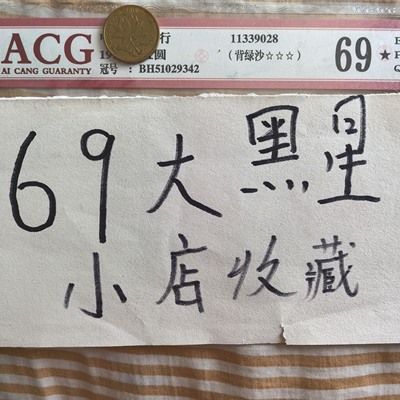 ACG 行 11339028
AI CANG GUARANTY 19 圆 (背绿沙☆☆☆) 69 ★
冠号: BH51029342
69大黑星
小店收藏